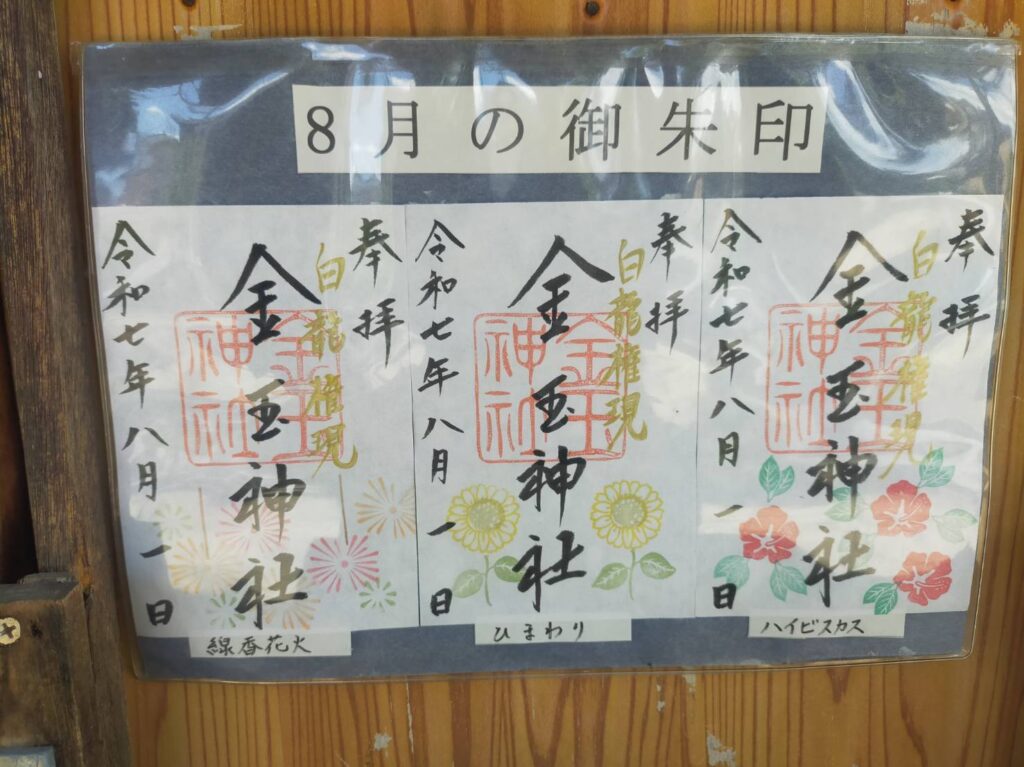 8月の御朱印
奉拝
白龍権現
金玉神社
金玉神社
令和七年八月一日
線香花火
奉拝
白龍権現
金玉神社
金玉神社
令和七年八月一日
ひまわり
奉拝
白龍権現
金玉神社
金玉神社
令和七年八月一日
ハイビスカス